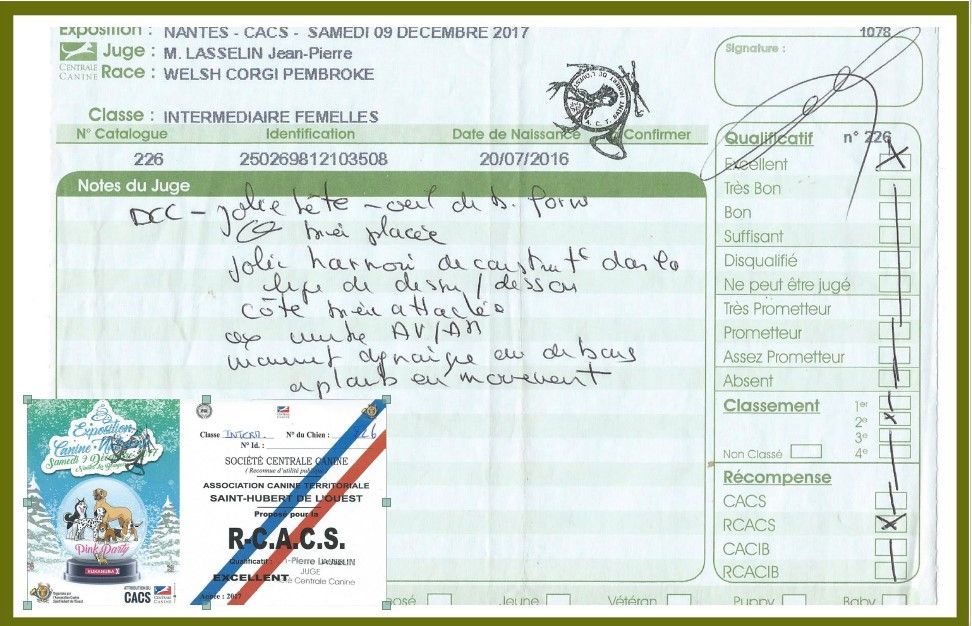 Exposition : NANTES - CACS - SAMEDI 09 DECEMBRE 2017
1078
Juge : M. LASSELIN Jean-Pierre
Signature :
CENTRALE CANINE
Race : WELSH CORGI PEMBROKE
Classe : INTERMEDIAIRE FEMELLES
N° Catalogue Identification Date de Naissance Confirmer
226 250269812103508 20/07/2016
Qualificatif n° 226
Excellent
Très Bon
Bon
Suffisant
Disqualifié
Ne peut être jugé
Très Prometteur
Prometteur
Assez Prometteur
Absent
Notes du Juge
DCC - jolie tête - oeil de b. forme
bien placée
jolie de dans la
ligne de dessus / dessou
côte bien attachée
AV/AR
aplomb en mouvement
Classement 1er
2e
3e
Non Classé 4e
Récompense
CACS
RCACS
CACIB
RCACIB
Exposition
Canine
Samedi 9 Décembre
Pink Party
ATTRIBUTION DU
CACS
CENTRALE CANINE
Classe N° du Chien : 226
N° Id. :
SOCIÉTÉ CENTRALE CANINE
(Reconnue d'utilité
ASSOCIATION CANINE TERRITORIALE
SAINT-HUBERT DE L'OUEST
Proposé pour la
R-C.A.C.S.
Qualificatif : -Pierre LASSELIN
JUGE
EXCELLENT Centrale Canine
Année : 2017
Jeune Vétéran Puppy Baby